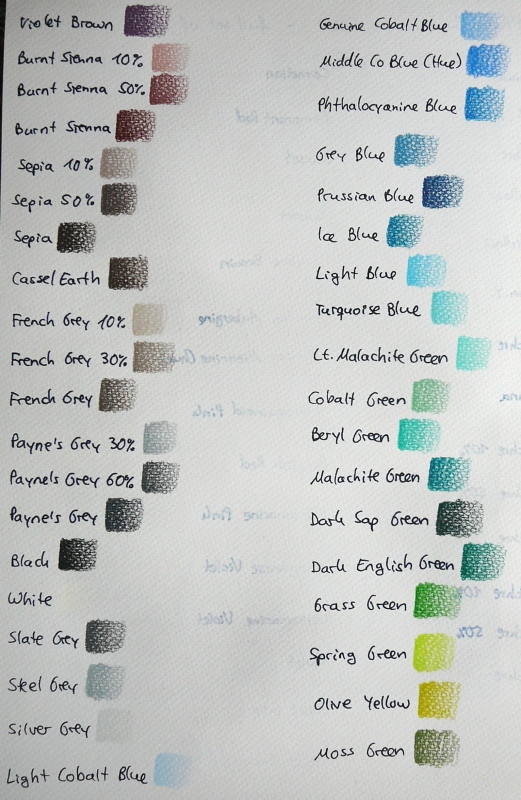 Violet Brown
Burnt Sienna 10%
Burnt Sienna 50%
Burnt Sienna
Sepia 10%
Sepia 50%
Sepia
Cassel Earth
French Grey 10%
French Grey 30%
French Grey
Payne's Grey 30%
Payne's Grey 60%
Payne's Grey
Black
White
Slate Grey
Steel Grey
Silver Grey
Light Cobalt Blue
Genuine Cobalt Blue
Middle Co Blue (Hue)
Phthalocyanine Blue
Grey Blue
Prussian Blue
Ice Blue
Light Blue
Turquoise Blue
Lt. Malachite Green
Cobalt Green
Beryl Green
Malachite Green
Dark Sap Green
Dark English Green
Grass Green
Spring Green
Olive Yellow
Moss Green